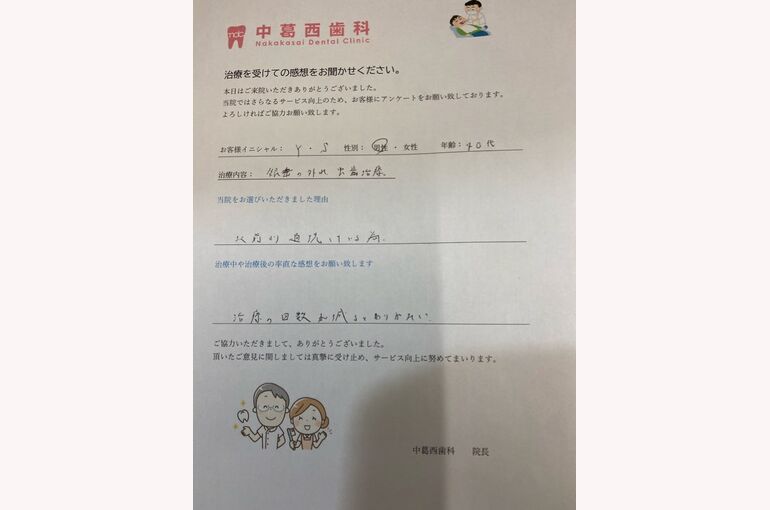 ndc 中葛西歯科
Nakakasai Dental Clinic
治療を受けての感想をお聞かせください。
本日はご来院いただきありがとうございました。
当院ではさらなるサービス向上のため、お客様にアンケートをお願い致しております。
よろしければご協力お願い致します。
お客様イニシャル： Y・S 性別： 男性 ・ 女性 年齢：40代
治療内容： 銀歯の外れ 虫歯治療。
当院をお選びいただきました理由
以前より通院している為。
治療中や治療後の率直な感想をお願い致します
治療の回数が減るとありがたい。
ご協力いただきまして、ありがとうございました。
頂いたご意見に関しましては真摯に受け止め、サービス向上に努めてまいります。
中葛西歯科 院長